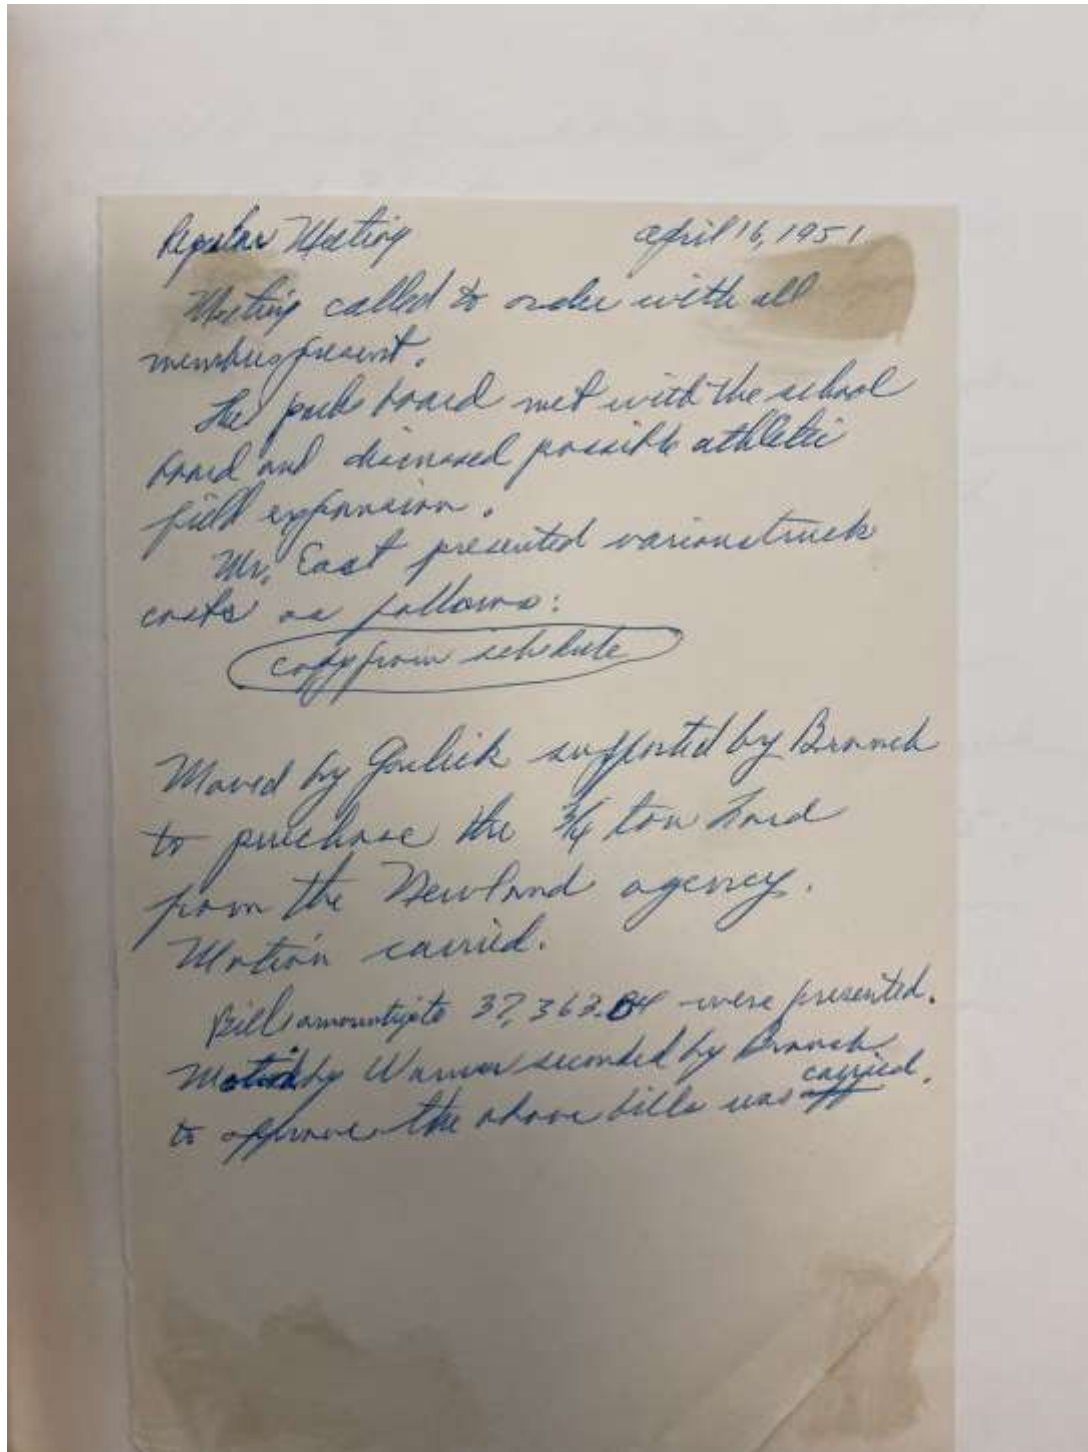 Regular Meeting April 16, 1951
Meeting called to order with all
members present.
The park board met with the school
board and discussed possible athletic
field expansion.
Mr. East presented various truck
costs as follows:
copy from schedule
Moved by Gulick supported by Branch
to purchase the 3/4 ton Ford
from the Newland agency.
Motion carried.
Bills amounting to 37,363.04 were presented.
Motion by Warner seconded by Branch
to approve the above bills was carried.